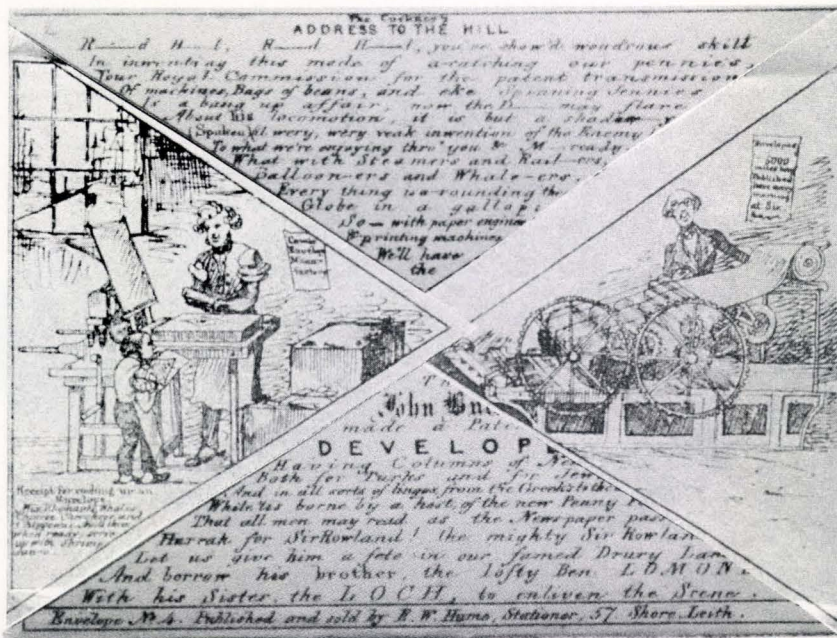 The Cockney's
ADDRESS TO THE HILL
R——d H—l, R——d H—l, you've show'd wondrous skill
In inventing this mode of a-catching our pennies,
Your Royal Commission for the patent transmission
Of machines, Bags of beans, and eke Spinning Jennies
Is a bang up affair, now the D—— may flare
About his locomotion, it is but a shadow
(Spoken) A wery, wery veak inwention of the Enemy
To what we're enjoying thro' you & M—ready
What with Steamers and Rail—ers,
Balloon—ers and Whale—ers,
Every thing us-rounding the
Globe in a gallop
So — with paper engines
& printing machines
We'll have
the
Comic
Envelope
Manu-
factory
Envelopes
5000
Published
every
morning
at Six
John Bu
made a Pate
DEVELOPE
Having Columns of Ne
Both for Turks and for Jew
And in all sorts of lingos, from the Greeks to the
While 'tis borne by a host, of the new Penny P
That all men may read as the Newspaper pass
Hurrah for Sir Rowland! the mighty Sir Rowlan
Let us give him a fete in our famed Drury Lan
And borrow his brother, the lofty Ben LOMON
With his Sister, the LOCH, to enliven the Scene.
Receipt for making up an
Envelope
when ready, serve
up with Shrimp
Sauce
Envelope No. 4. Published and sold by R. W. Hume, Stationer, 57 Shore Leith.